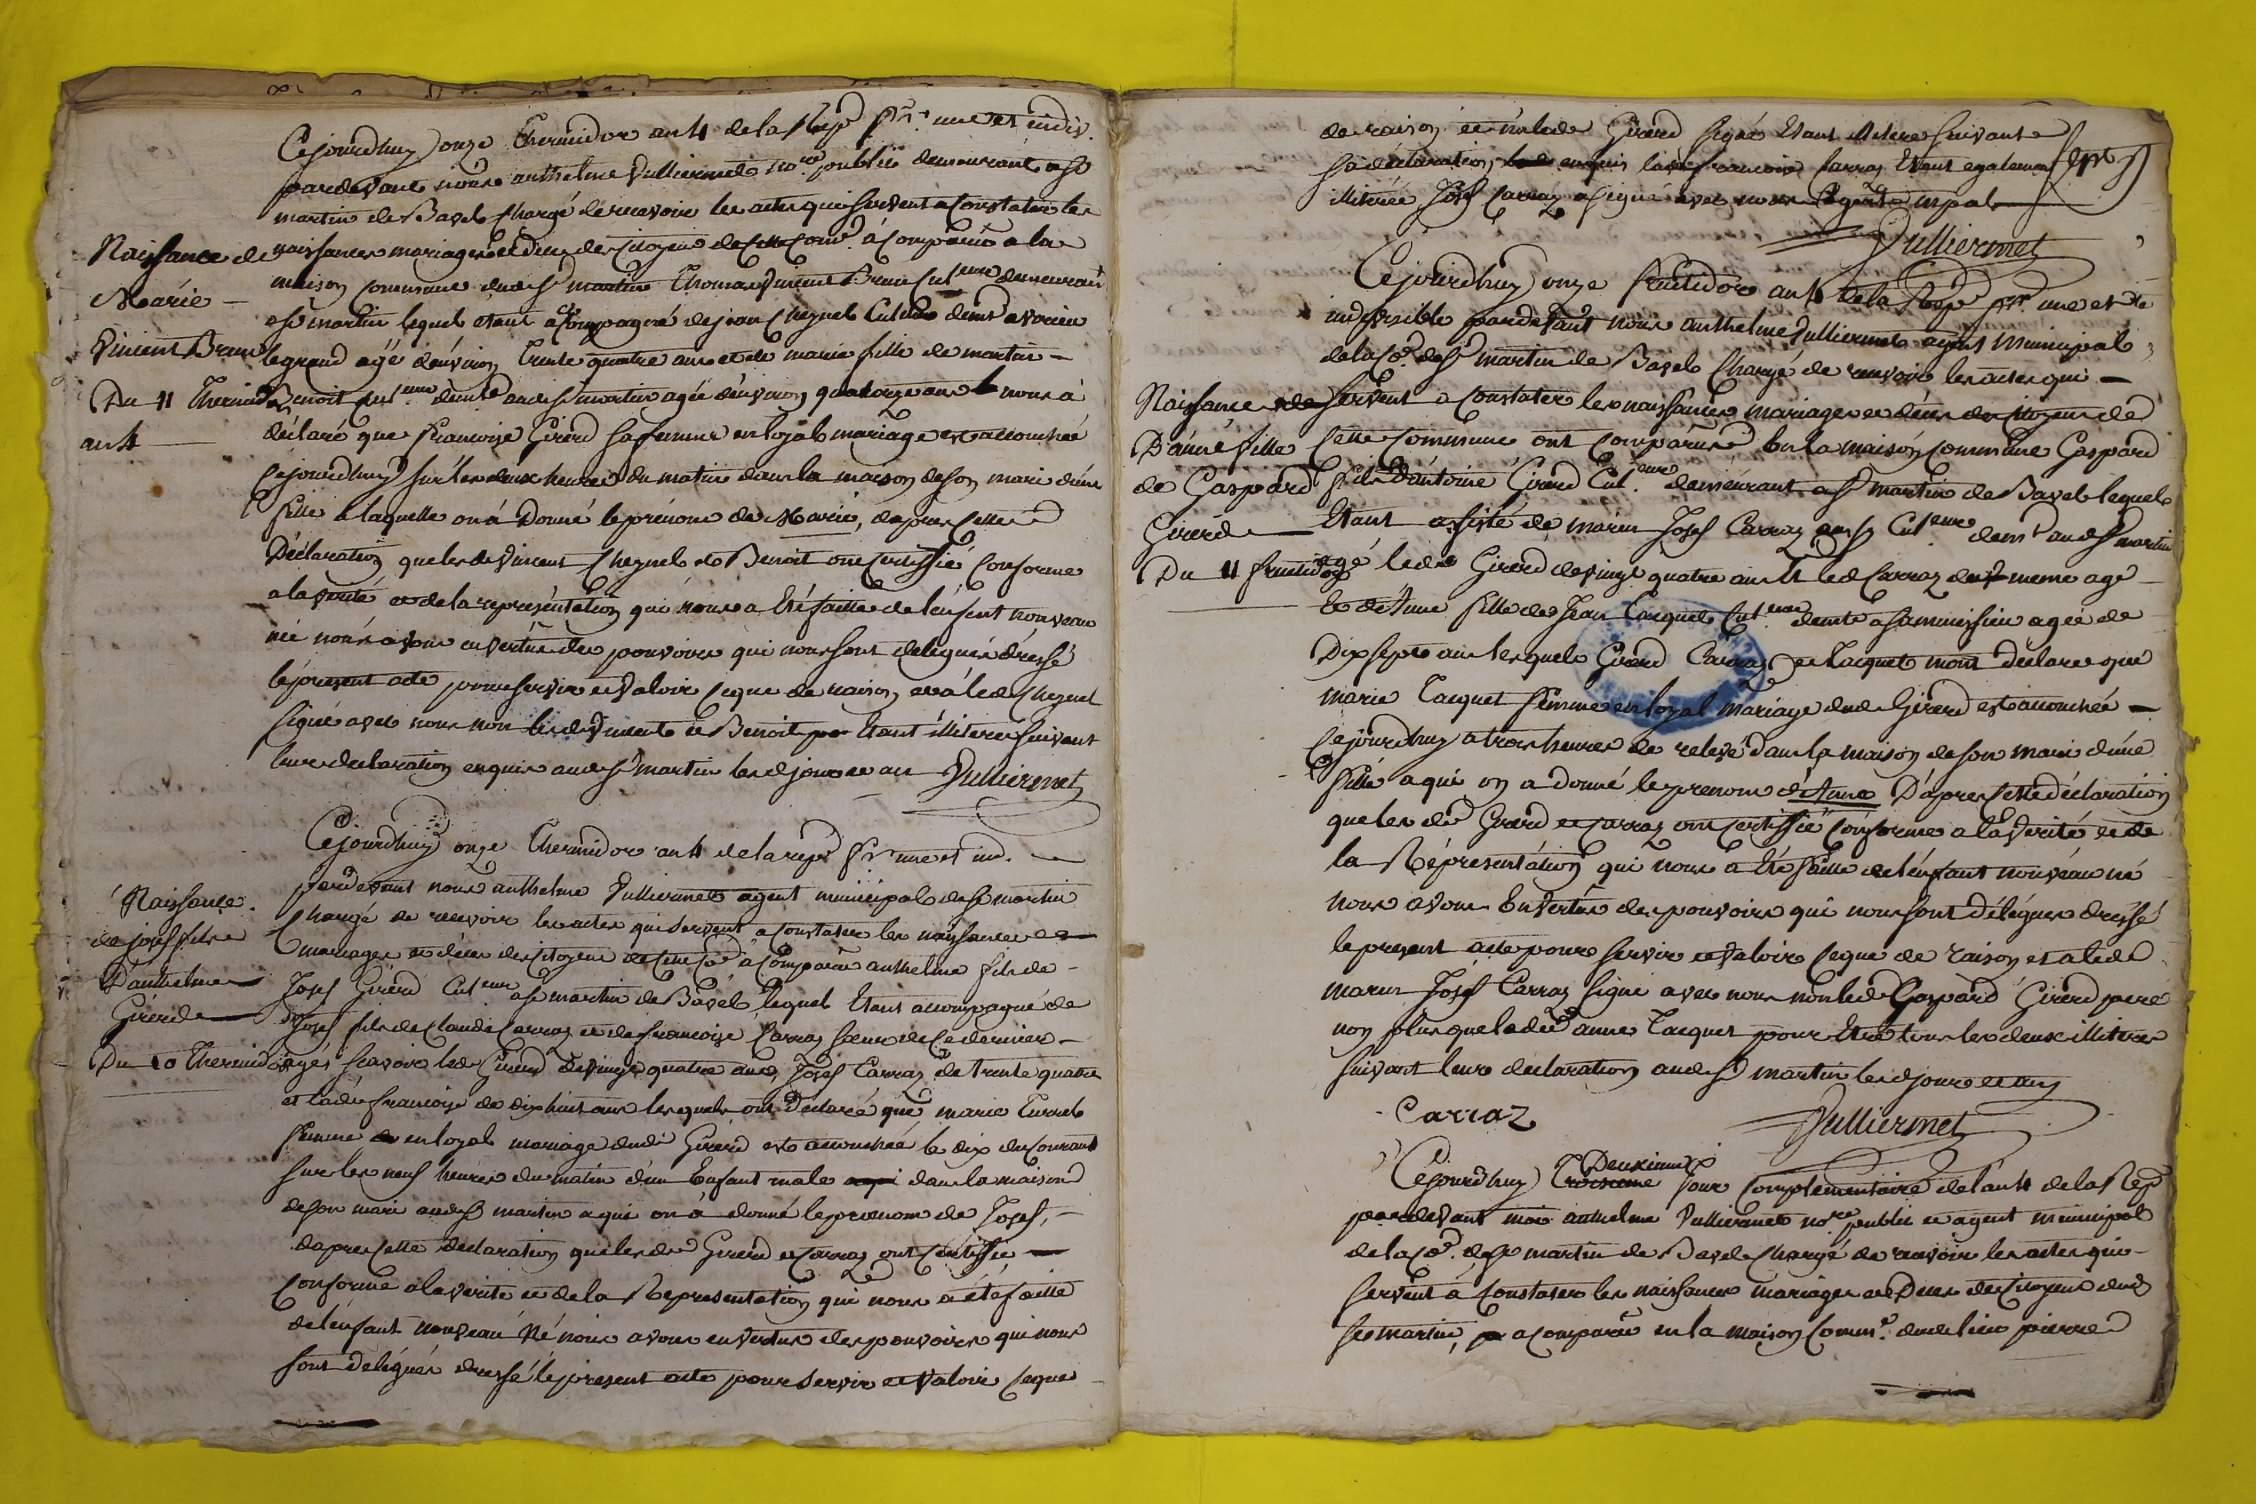 Cejourdhuy onze Thermidor an 4 de la Rep. fr. une et indiv.
pardevant nous anthelme Vulliermet no.re public demeurant a St
martin de Bavel chargé de recevoir les actes qui servent a Constater les
naissances mariages et deces des citoyens de cette com.e a comparu a la
maison commune dud. St martin Thomas Vincent Brun Cul.teur demeurant
a St martin lequel etant accompagné de jean Cheynel Cul. dem.t a
legrand agé d'environ Trente quatre ans et de marie fille de martin
Benoit Cul.teur dem.te aud. St martin agée d'environ quatorze ans nous a
déclaré que francoise Girerd sa femme en loyal mariage est accouchée
Cejourdhuy sur les deux heures du matin dans la maison de son mari d'une
fille a laquelle on a Donné le prénom de Marie, dapres cette
Déclaration que lesd. Vincent Cheynel et Benoit ont Certiffié Conforme
a la verité et de la representation qui nous a Eté faitte de l'enfent nouveau
née nous avons en vertu des pouvoirs qui nous sont délégués dréssé
le présent acte pour servir et valoir ce que de raison et a led. Cheynel
signé avec nous non lesd. Vincent et Benoit pr Etant illiteres suivant
leurs declaration enquis aud. St martin lesd. jour et an Vulliermet
Naissance de
Marie
Vincent Brun
Du 11 Thermid.
an 4
Cejourdhuy onze Thermidor an 4 de la rep. fr. une et ind.
pardevant nous anthelme Vulliermet agent municipal de St martin
Chargé de recevoir les actes qui servent a constater les naissances
mariages et déces des Citoyens de cette Co.e a Comparu anthelme fils de
Josef Girerd Cul.teur a St martin de Bavel lequel Etant accompagné de
Josef fils de Claude Carraz et de francoise Carraz soeur de ce dernier
agés scavoir led. Girerd de vingt quatre ans, Josef Carraz de trente quatre
et ladi. francoise de dix huit ans lesquels ont Déclaré que marie Turrel
femme en loyal mariage dudi. Girerd est accouchée le dix du Courant
sur les neuf heures du matin d'un Enfant male dans la maison
de son mari aud. St martin a qui on a donné le prenom de Josef,
dapres cette declaration que lesd. Girerd et Carraz ont Certiffié
Conforme a la verité et de la Representation qui nous a été faitte
de l'enfant nouveau Né nous avons en vertus des pouvoirs qui nous
sont délégués dressé le présent acte pour servir et valoir ceque
Naissance
de josef fils
D'anthelme
Girerd
Du 10 Thermidor
de raison et n'a led. Girerd signé Etant illitere suivant
sa déclaration enquis ladi. francoise Carraz Etant egalement
illiterée Josef Carraz a signé avec nous Agent mpal
Vulliermet
Cejourdhuy onze fructidor an 4 de la Rep. fr. une et
indivisible pardevant nous anthelme Vulliermet agent municipal
de la Co.e de St martin de Bavel Chargé de recevoir les actes qui
servent a Constater les naissances mariages et déces des citoyens de
Cette Commune ont Comparu En la maison Commune Gaspard
fils D'antoine Girerd Cul.teur demeurant a St martin de Bavel lequel
Etant assisté de marin Josef Carraz aussy Cul.teur dem.t aud. St martin
agé led. Girerd de vingt quatre ans et led. Carraz du meme age
et d'Anne fille de Jean Tacquet Cul.teur dem.te a sammissieu agée de
Dix sept ans lesquels Girerd Carraz et Tacquet m'ont déclaré que
marie Tacquet femme en loyal mariage dud. Girerd est accouchée
Cejourdhuy a trois heures de relevé dans la maison de son mari d'une
fille a qui on a donné le prenom d'Anne D'apres cette déclaration
que lesd. Girerd et Carraz ont certiffié conforme a la Verité et de
la Réprésentation qui nous a Eté faitte de l'enfant nouveau né
nous avons En vertus des pouvoirs qui nous sont délégués dressé
le present acte pour servir et valoir ceque de raison et a led.
marin Josef Carraz signé avec nous non led. Gaspard Girerd pere
non plus que ladi. anne Tacquet pour Etre tous les deux illiteres
suivant leurs declaration aud. St martin lesd. jour et an
Carraz Vulliermet
Naissance
D'anne fille
de Gaspard
Girerd
Du 11 fructidor
Deuxieme
Cejourdhuy Troisieme jour Complementaire de l'an 4 de la Rep.
pardevant moi anthelme Vulliermet no.re public et agent municipal
de la Co.e de St martin de Bavel Chargé de recevoir les actes qui
servent a Constater les naissances mariages et Deces des Citoyens dud.
St martin, a comparu en la maison Comm.e dud. lieu pierre